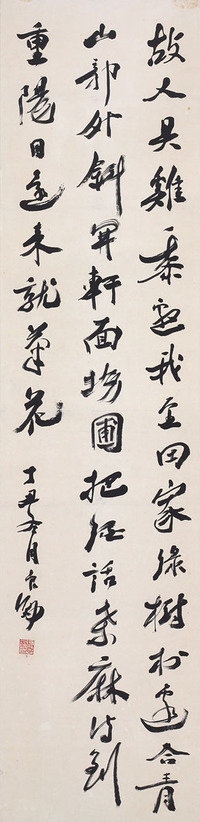 故人具雞黍邀我至田家綠樹村邊合青
山郭外斜開軒面場圃把酒話桑麻待到
重陽日還來就菊花
丁丑年月